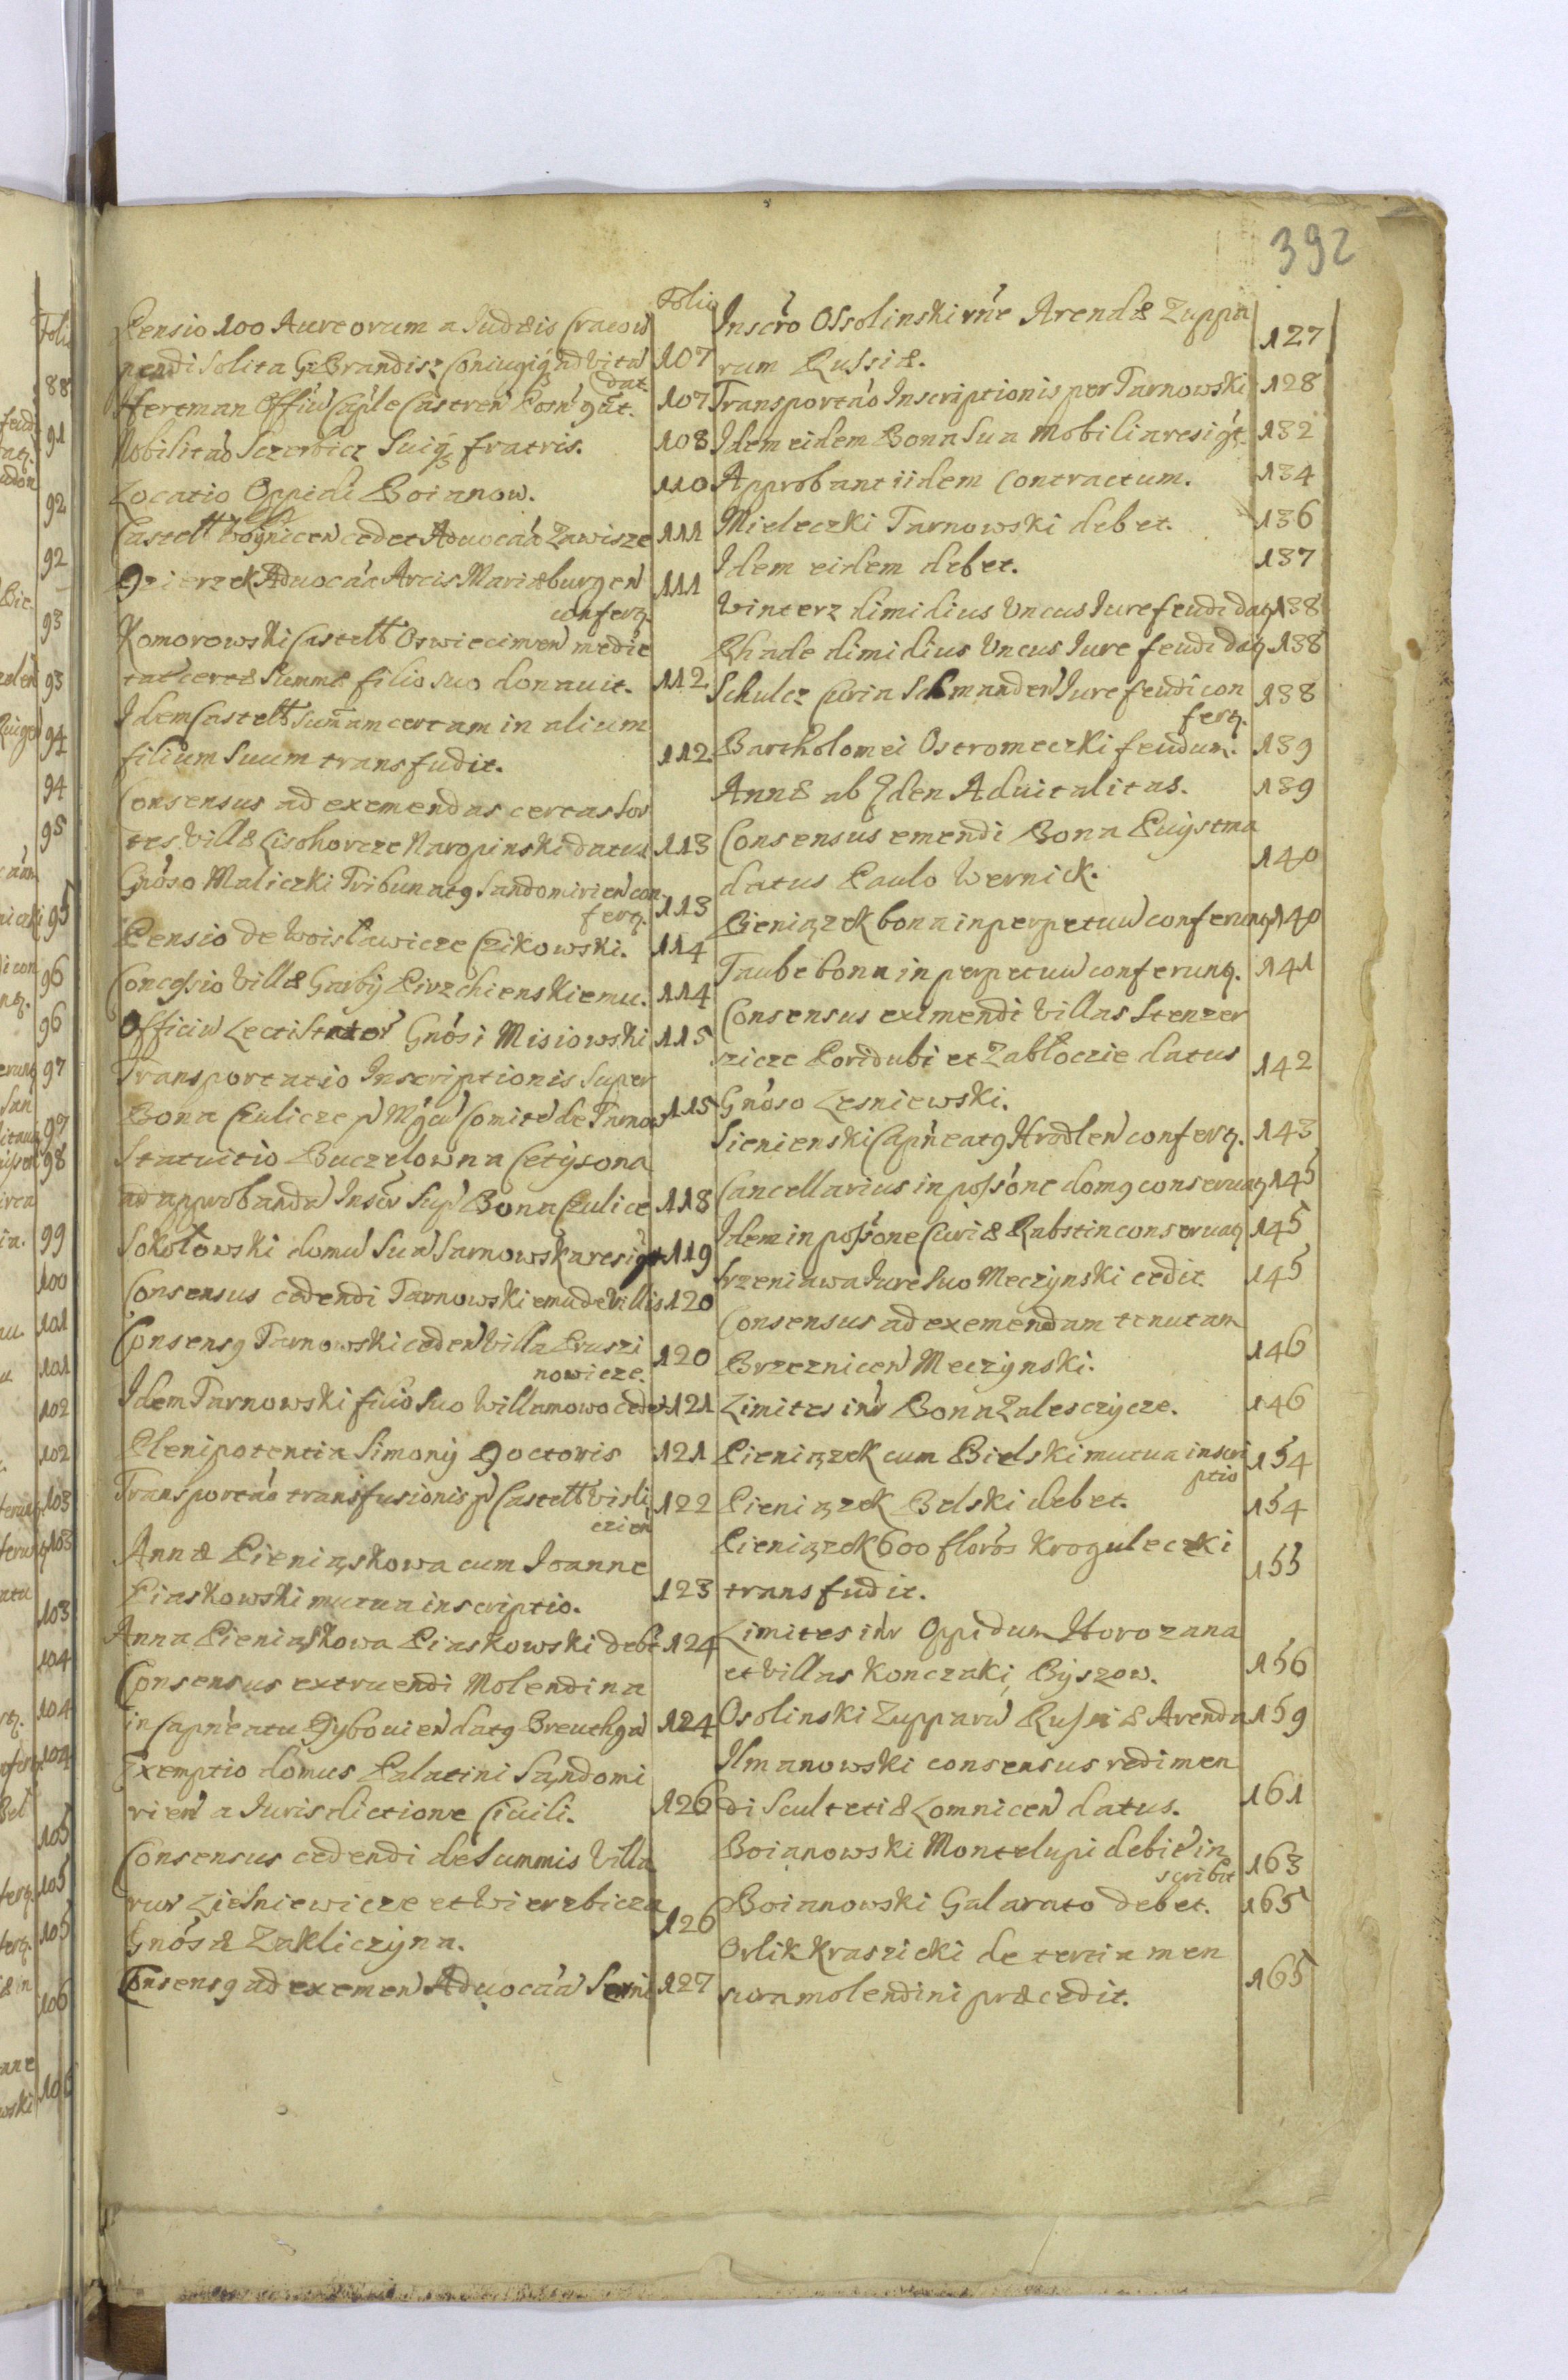 392
Folio
Pensio 100 Aureorum a Iudæis Cracov
pendi solita G. Brandisz Coniugiq ad vitā
dat 107
Herman Offiū Cap'le Castreñ Posn 107
Nobilitaō Sczerbicz Suiq fratris. 108
Locatio Oppidi Boianow. 110
Castell Woynicen̄ cedet Aduocaā Zawisze 111
Dzierzek Aduocaā Arcis Mariæburgen̄ 111
confertz.
Komorowski Castell Oswiecimen̄ medie
tat certæ Summæ filio suo donauit. 112
Idem Castell Sum̄am certam in alium
filium Suum transfudit. 112.
Consensus ad exemendas certas Sor
tes Villæ Lisohorcze Naropinski datus 113
Gnoso Maliczki Tribunatq Sandomirien̄ con
fertz. 113
Pensio de Woisławicze Czikowski. 114
Concessio Villæ Garby Pirzchienskiemu. 114
Officiū Lectistrator Gnosi Misiowski 115
Transportatio Inscriptionis super
Bona Czulicze p Mgcū Comitē de Tarnow 115
Statuitio Buczelowna Cetysona
ad approbandā Inscr Sup Bona Czulice 118
Sokołowski domū Suā Sarnowska resigt 119
Consensus cedendi Tarnowskiemu de Villis 120
Consensq Tarnowski ceden̄ Villa Pruszi
nowicze. 120
Idem Tarnowski filio suo Willamowo cedet 121
Plenipotentia Simonij Doctoris 121
Transportaō transfusionis p Castell Visli
cien̄ 122
Annæ Pieniązkowa cum Ioanne
Piaskowski mutua inscriptio. 123
Anna Pieniążkowa Piaskowski debt 124
Consensus extruendi Molendina
in Capneatu Dybouien̄ datq Breuthgā 124
Exemptio domus Palatini Sandomi
rien̄ a Iurisdictione Ciuili. 126
Consensus cedendi de Summis Villa
rum Liesniewicze et Wierzbicza
Gnosæ Zakliczyna. 126
Consensq ad exemen̄ Aduocaā Serni 127
Inscro Ossolinski rn̄e Arendæ Zuppa
rum Russiæ. 127
Transportaō Inscriptionis per Tarnowski 128
Idem eidem Bona Sua Mobilia resigt 132
Approbant iidem Contractum. 134
Mieleczki Tarnowski debet. 136
Idem eidem debet. 137
Winterz dimidius Vncus Iure feudi datq 138
Rhade dimidius Vncus Iure feudi datq 138
Schulcz Curia Schmanden̄ Iure feudi con
fertz. 138
Bartholomei Ostromeczki feudum. 139
Annæ ab Eden Aduitalitas. 139
Consensus emendi Bona Puystma
datus Paulo Wernick. 140
Pieniązek bona in perpetuū conferuntz 140
Taube bona in perpetuū conferuntz. 141
Consensus eximendi Villas Stenzer
zicze Poridubi et Zabłoczie datus
Gnoso Lesniewski. 142
Sienienski Capneatq Hrodlen̄ confertz. 143
Cancellarius in possone domq conseruatz 145
Idem in possone Curiæ Rabstin conseruatz 145
Srzeniawa Iure Suo Meczynski cedit 145
Consensus ad exemendam tenutam
Brzeznicen̄ Meczynski. 146
Limites inr Bona Zalesczycze. 146
Pieniązek cum Bielski mutua inscri
ptio 154
Pieniązek Belski debet. 154
Pieniązek 600 florōs Kroguleczki
transfudit. 155
Limites inr Oppidum Horozana
et Villas Konczaki, Byszow. 156
Osolinski Zupparū Russiæ Arenda 159
Ilmanowski consensus redimen
di Scultetiæ Lomnicen̄ datus. 161
Boianowski Montelupi debit in
scribit 163
Boianowski Galarato debet. 165
Orlik Kraszicki de tertia men
sura molendini præcedit. 165